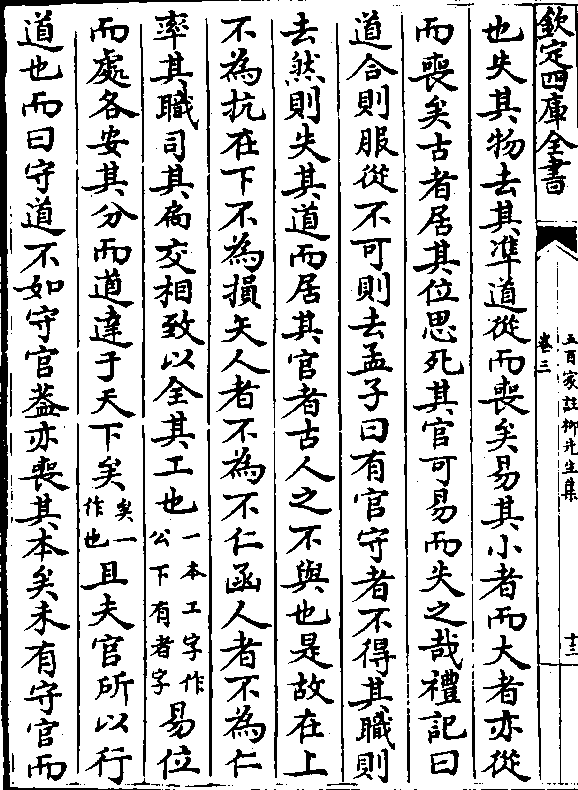 欽定四庫全書
五百家註柳先生集
卷三
十三
也失其物去其準道從而喪矣易其小者而大者亦從
而喪矣古者居其位思死其官可易而失之哉禮記曰
道合則服從不可則去孟子曰有官守者不得其職則
去然則失其道而居其官者古人之不與也是故在上
不為抗在下不為損矢人者不為不仁函人者不為仁
率其職司其局交相致以全其工也一本工字作公下有者字易位
而處各安其分而道達于天下矣矣一作也且夫官所以行
道也而曰守道不如守官葢亦喪其本矣未有守官而